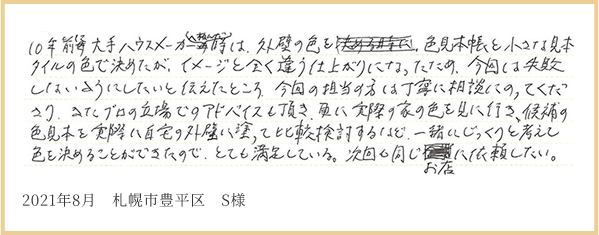 10年前 大手ハウスメーカー 時は、外壁の色を、色見本帳と小さな見本
タイルの色で決めたが、イメージと全く違う仕上がりになったため、今回は失敗
しないようにしたいと伝えたところ、今回の担当の方は丁寧に相談にのってくだ
さり、またプロの立場でのアドバイスも頂き、更に実際の家の色を見に行き、候補の
色見本を実際に自宅の外壁に塗って比較検討するなど、一緒にじっくりと考えし
色を決めることができたので、とても満足している。次回も同じお店に依頼したい。
2021年8月 札幌市豊平区 S様